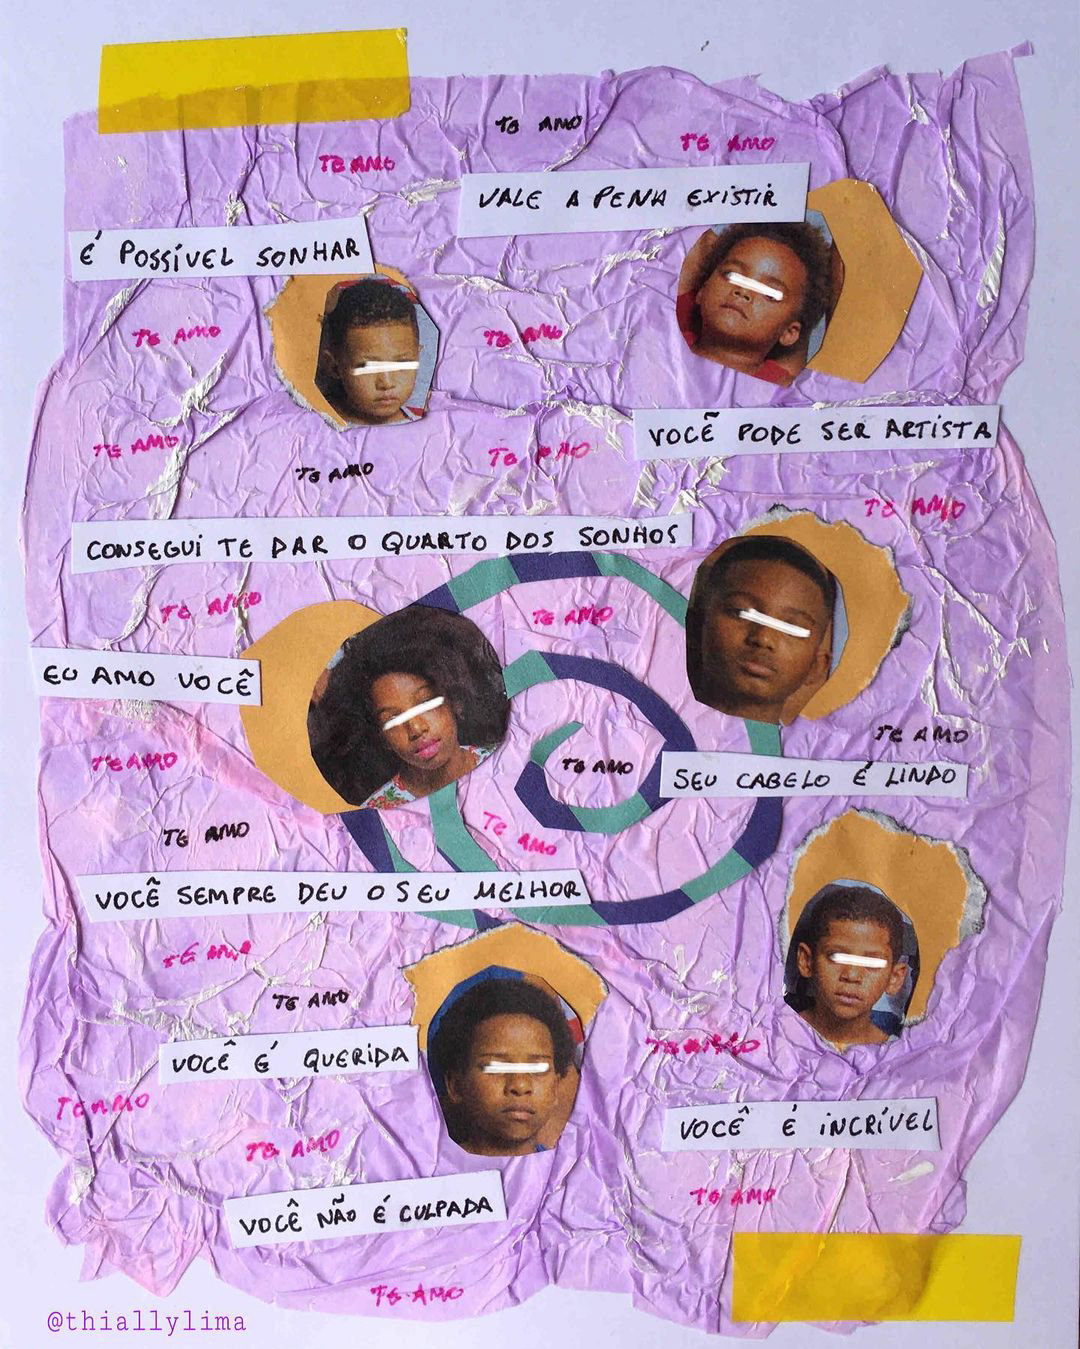 TE AMO
TE AMO
TE AMO
VALE A PENA EXISTIR
É POSSÍVEL SONHAR
TE AMO
TE AMO
VOCÊ PODE SER ARTISTA
TE AMO
TE AMO
TE AMO
TE AMO
CONSEGUI TE DAR O QUARTO DOS SONHOS
TE AMO
TE AMO
EU AMO VOCÊ
TE AMO
TE AMO
TE AMO
SEU CABELO É LINDO
TE AMO
TE AMO
VOCÊ SEMPRE DEU O SEU MELHOR
TE AMO
TE AMO
VOCÊ É QUERIDA
TE AMO
TE AMO
VOCÊ É INCRÍVEL
TE AMO
TE AMO
VOCÊ NÃO É CULPADA
TE AMO
@thiallylima